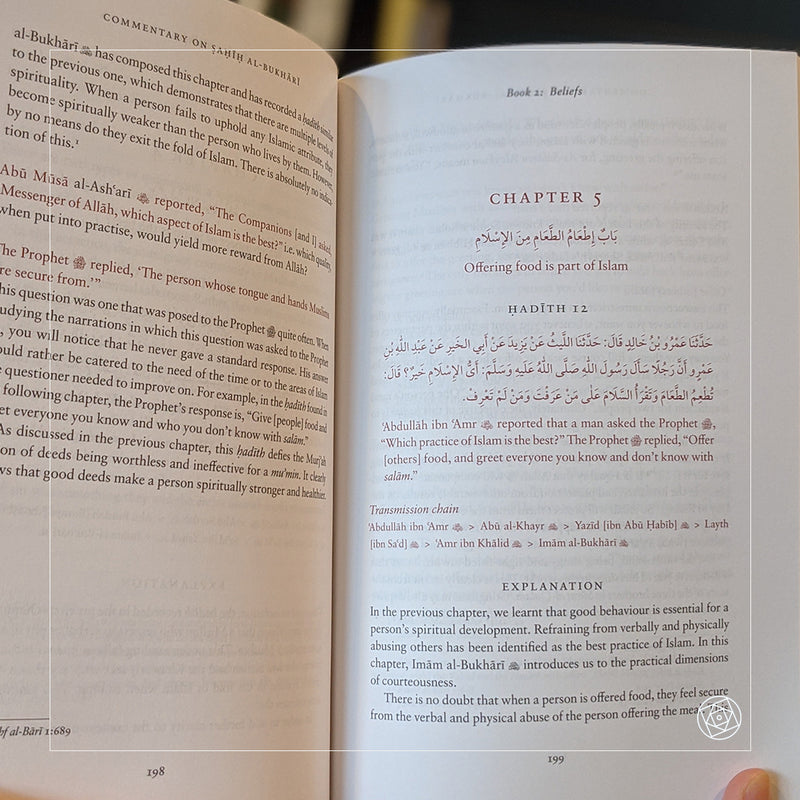 COMMENTARY ON ṢAḤĪḤ AL-BUKHĀRĪ
al-Bukhārī has composed this chapter and has recorded a ḥadīth similar
to the previous one, which demonstrates that there are multiple levels of
spirituality. When a person fails to uphold any Islamic attribute, they
become spiritually weaker than the person who lives by them. However,
by no means do they exit the fold of Islam. There is absolutely no indica-
tion of this.¹
Abū Mūsā al-Ashʿarī reported, “The Companions [and I] asked,
Messenger of Allāh, which aspect of Islam is the best?” i.e. which quality,
when put into practise, would yield more reward from Allāh?
The Prophet replied, ‘The person whose tongue and hands Muslims
re secure from.’”
his question was one that was posed to the Prophet quite often. When
udying the narrations in which this question was asked to the Prophet
, you will notice that he never gave a standard response. His answer
ould rather be catered to the need of the time or to the areas of Islam
e questioner needed to improve on. For example, in the ḥadīth found in
following chapter, the Prophet’s response is, “Give [people] food and
et everyone you know and who you don’t know with salām.”
As discussed in the previous chapter, this ḥadīth defies the Murjiʾah
on of deeds being worthless and ineffective for a muʾmin. It clearly
ws that good deeds make a person spiritually stronger and healthier.
al-Bārī 1:689
198
Book 2: Beliefs
CHAPTER 5
بَابٌ إِطْعَامُ الطَّعَامِ مِنَ الإِسْلَامِ
Offering food is part of Islam
ḤADĪTH 12
حَدَّثَنَا عَمْرُو بْنُ خَالِدٍ قَالَ: حَدَّثَنَا اللَّيْثُ عَنْ يَزِيدَ عَنْ أَبِي الخَيْرِ عَنْ عَبْدِ اللهِ بْنِ
عَمْرٍو أَنَّ رَجُلًا سَأَلَ رَسُولَ اللهِ صَلَّى اللهُ عَلَيْهِ وَسَلَّمَ: أَيُّ الإِسْلَامِ خَيْرٌ؟ قَالَ:
تُطْعِمُ الطَّعَامَ وَتَقْرَأُ السَّلَامَ عَلَى مَنْ عَرَفْتَ وَمَنْ لَمْ تَعْرِفْ.
ʿAbdullāh ibn ʿAmr reported that a man asked the Prophet ,
“Which practice of Islam is the best?” The Prophet replied, “Offer
[others] food, and greet everyone you know and don’t know with
salām.”
Transmission chain
ʿAbdullāh ibn ʿAmr > Abū al-Khayr > Yazīd [ibn Abū Ḥabīb] > Layth
[ibn Saʿd] > ʿAmr ibn Khālid > Imām al-Bukhārī
EXPLANATION
In the previous chapter, we learnt that good behaviour is essential for a
person’s spiritual development. Refraining from verbally and physically
abusing others has been identified as the best practice of Islam. In this
chapter, Imām al-Bukhārī introduces us to the practical dimensions
of courteousness.
There is no doubt that when a person is offered food, they feel secure
from the verbal and physical abuse of the person offering the
199